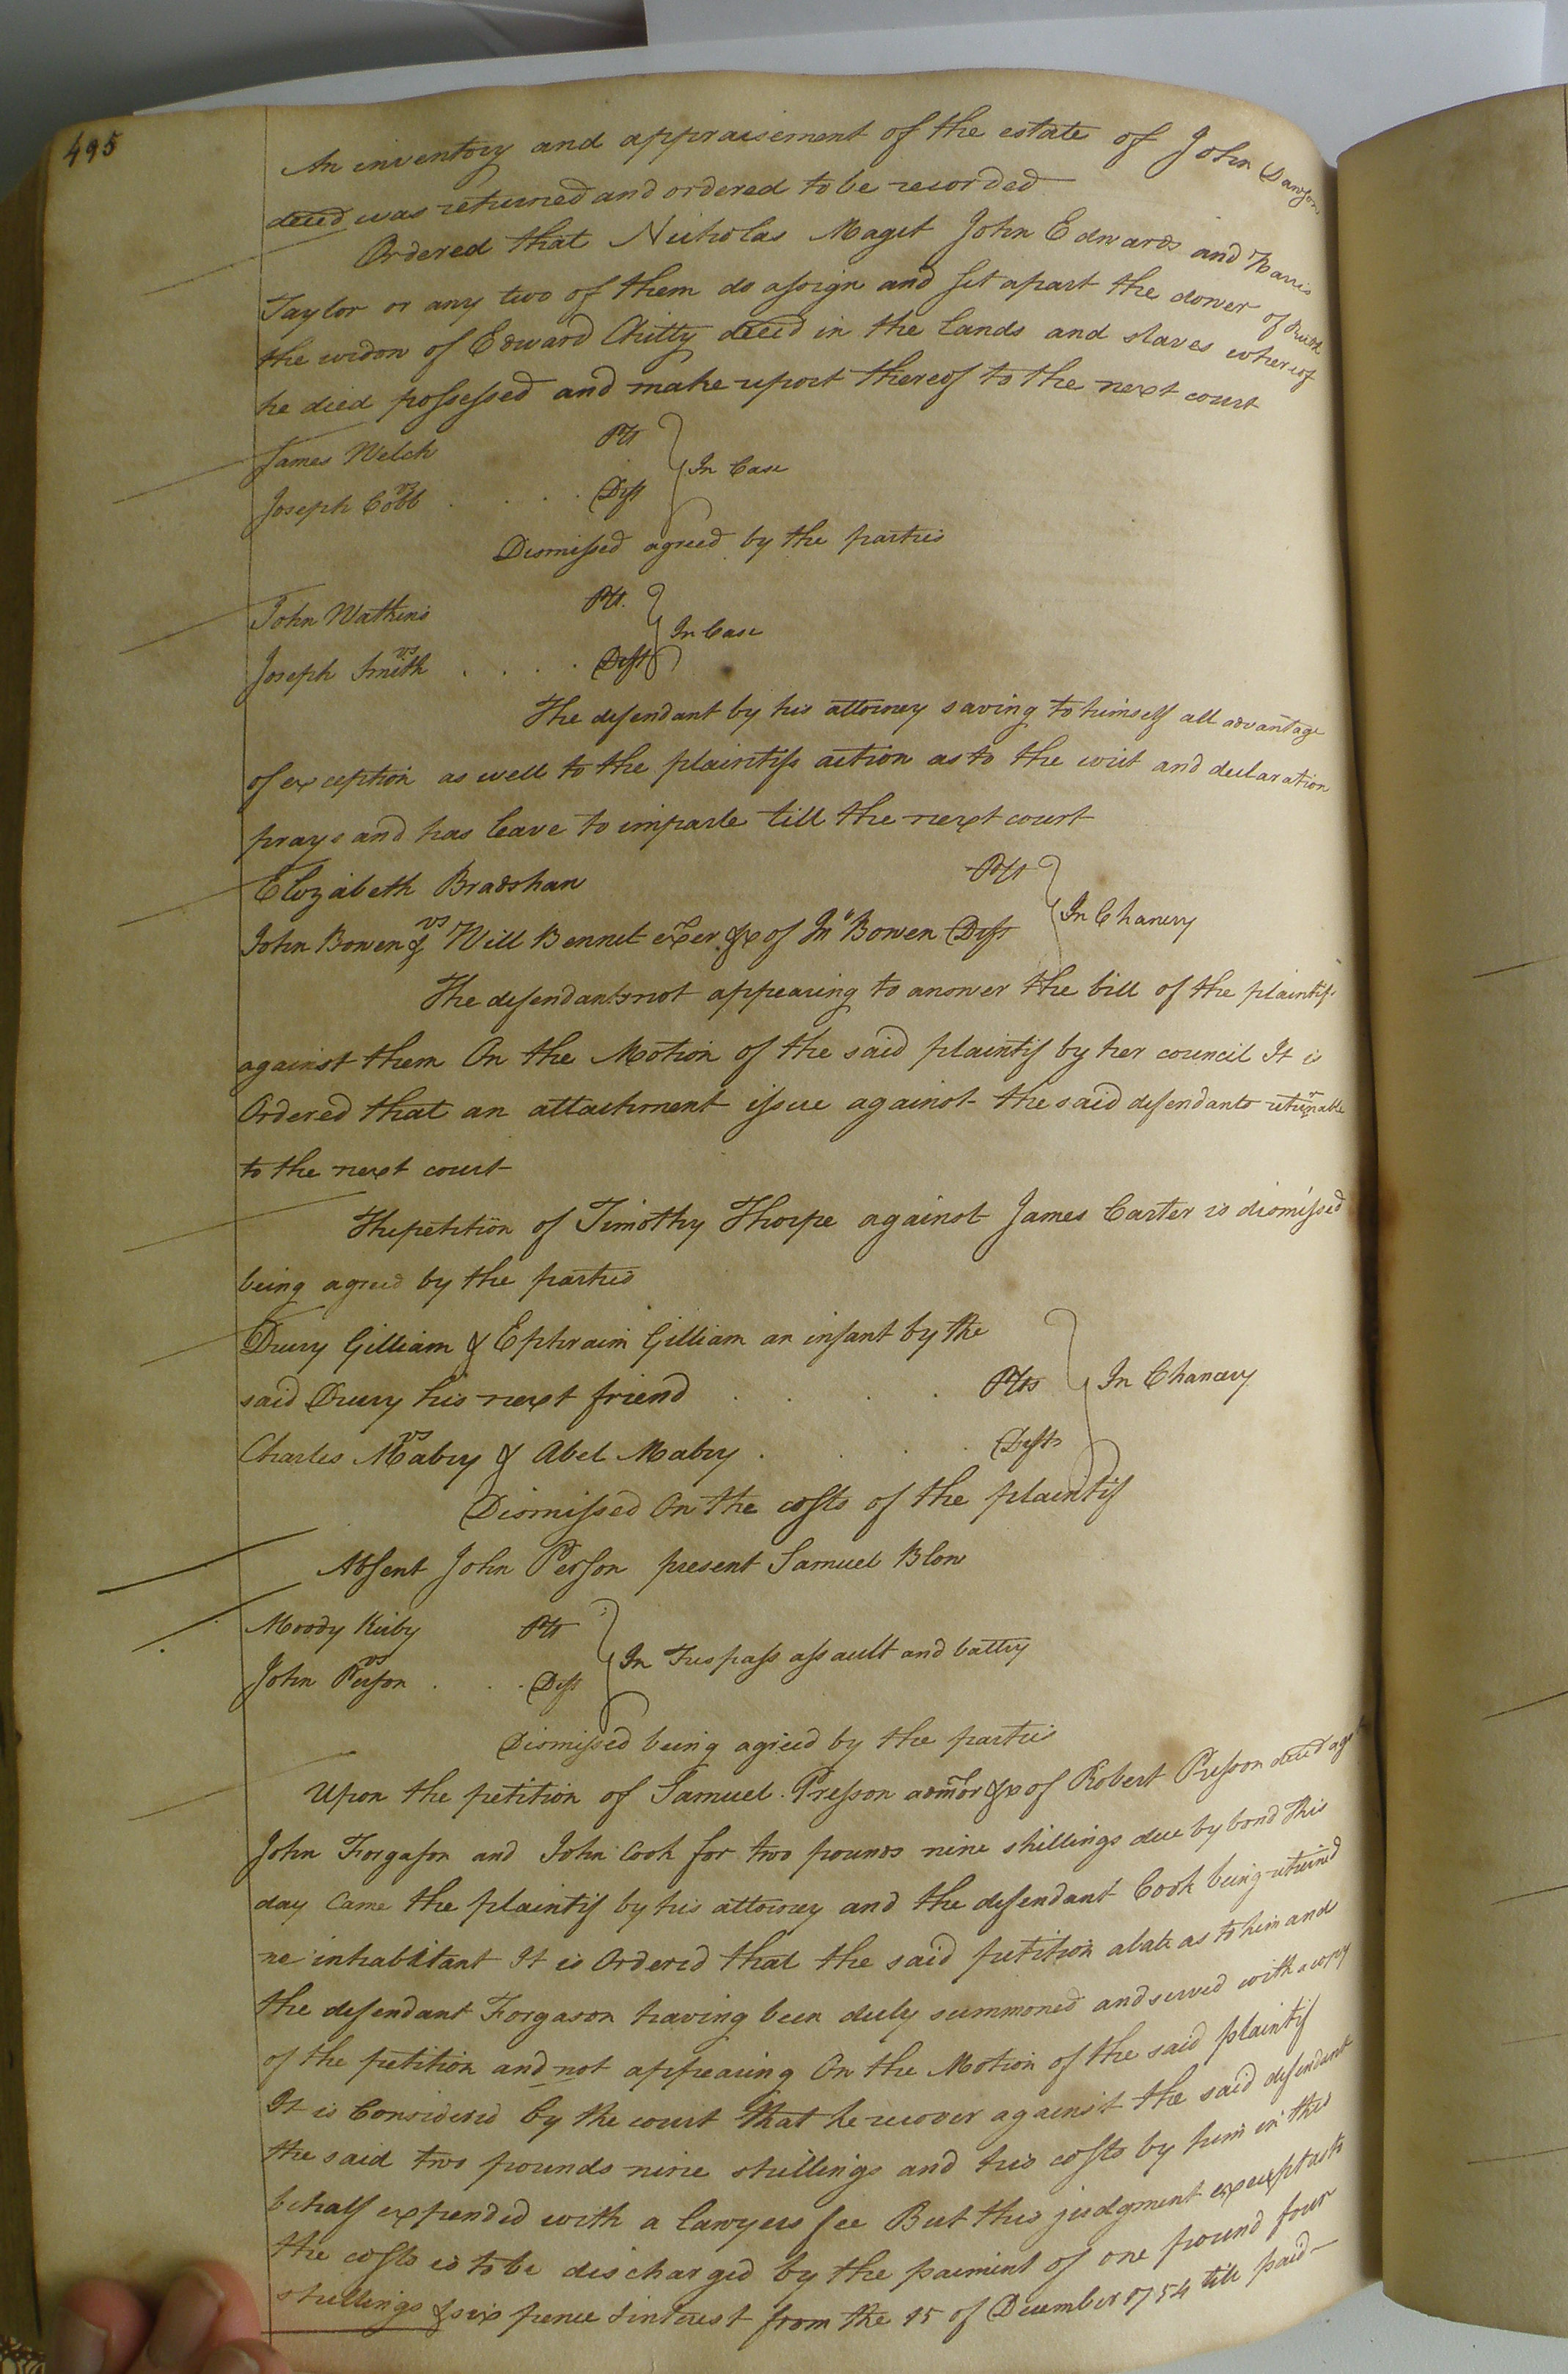 495
An inventory and appraisement of the estate of John Dawson
deced was returned and ordered to be recorded
Ordered that Nicholas Maget John Edwards and Harris
Taylor or any two of them do assign and set apart the dower of Ruth
the widow of Edward Chitty deced in the lands and slaves whereof
he died possessed and make report thereof to the next court
James Welch Plt
vs In Case
Joseph Cobb . . . . Deft
Dismissed agreed by the parties
John Watkins Plt.
vs In Case
Joseph Smith . . . . Deft
The defendant by his attorney saving to himself all advantage
of exception as well to the plaintifs action as to the writ and declaration
prays and has leave to imparle till the next court
Elizabeth Bradshaw Plt
vs In Chancery
John Bowen & Will Bennet exer &c of Jno Bowen Defts
The defendants not appearing to answer the bill of the plaintif
against them On the Motion of the said plaintif by her council It is
Ordered that an attachment issue against the said defendants returnable
to the next court
The petition of Timothy Thorpe against James Carter is dismissed
being agreed by the parties
Drury Gilliam & Ephraim Gilliam an infant by the
said Drury his next friend . . . . Plts In Chancery
vs
Charles Mabry & Abel Mabry . . . Defts
Dismissed On the costs of the plaintif
Absent John Person present Samuel Blow
Moody Kirby Plt
vs In Trespass assault and battry
John Person . . . Deft
Dismissed being agreed by the parties
Upon the petition of Samuel Presson admor &c of Robert Presson deced agt
John Forgason and John Cook for two pounds nine shillings due by bond This
day Came the plaintif by his attorney and the defendant Cook being returned
no inhabitant It is Ordered that the said petition abate as to him and
the defendant Forgason having been duly summoned and served with a copy
of the petition and not appearing On the Motion of the said plaintif
It is Considered by the court that he recover against the said defendant
the said two pounds nine shillings and his costs by him in this
behalf expended with a lawyers fee But this judgment except as to
the costs is to be discharged by the paiment of one pound four
shillings & six pence & interest from the 15 of December 1754 till paid